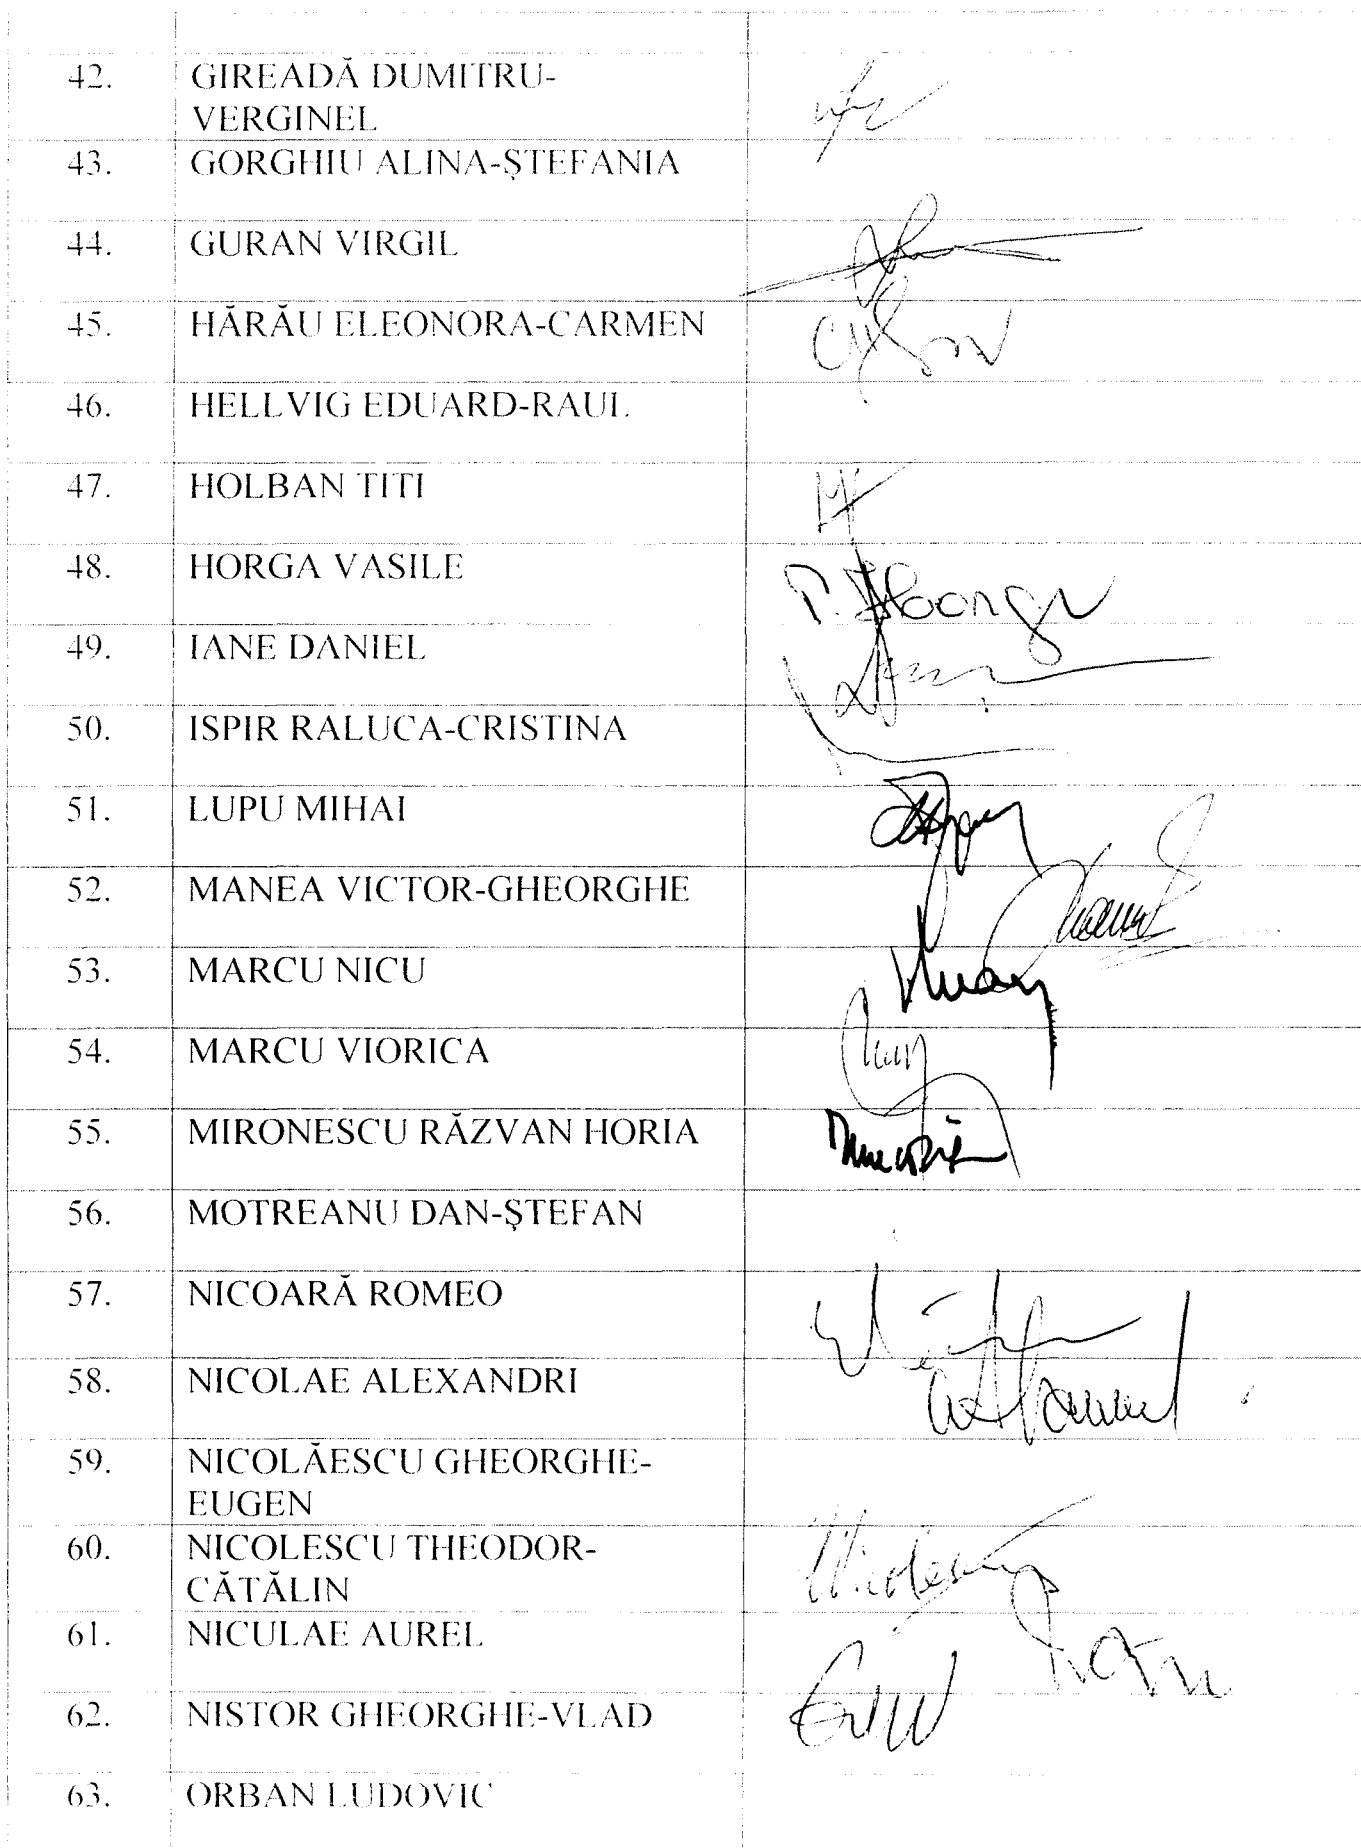 42. GIREADĂ DUMITRU-
VERGINEL
43. GORGHIU ALINA-ȘTEFANIA
44. GURAN VIRGIL
45. HĂRĂU ELEONORA-CARMEN
46. HELLVIG EDUARD-RAUL
47. HOLBAN TITI
48. HORGA VASILE
49. IANE DANIEL
50. ISPIR RALUCA-CRISTINA
51. LUPU MIHAI
52. MANEA VICTOR-GHEORGHE
53. MARCU NICU
54. MARCU VIORICA
55. MIRONESCU RĂZVAN HORIA
56. MOTREANU DAN-ȘTEFAN
57. NICOARĂ ROMEO
58. NICOLAE ALEXANDRI
59. NICOLĂESCU GHEORGHE-
EUGEN
60. NICOLESCU THEODOR-
CĂTĂLIN
61. NICULAE AUREL
62. NISTOR GHEORGHE-VLAD
63. ORBAN LUDOVIC